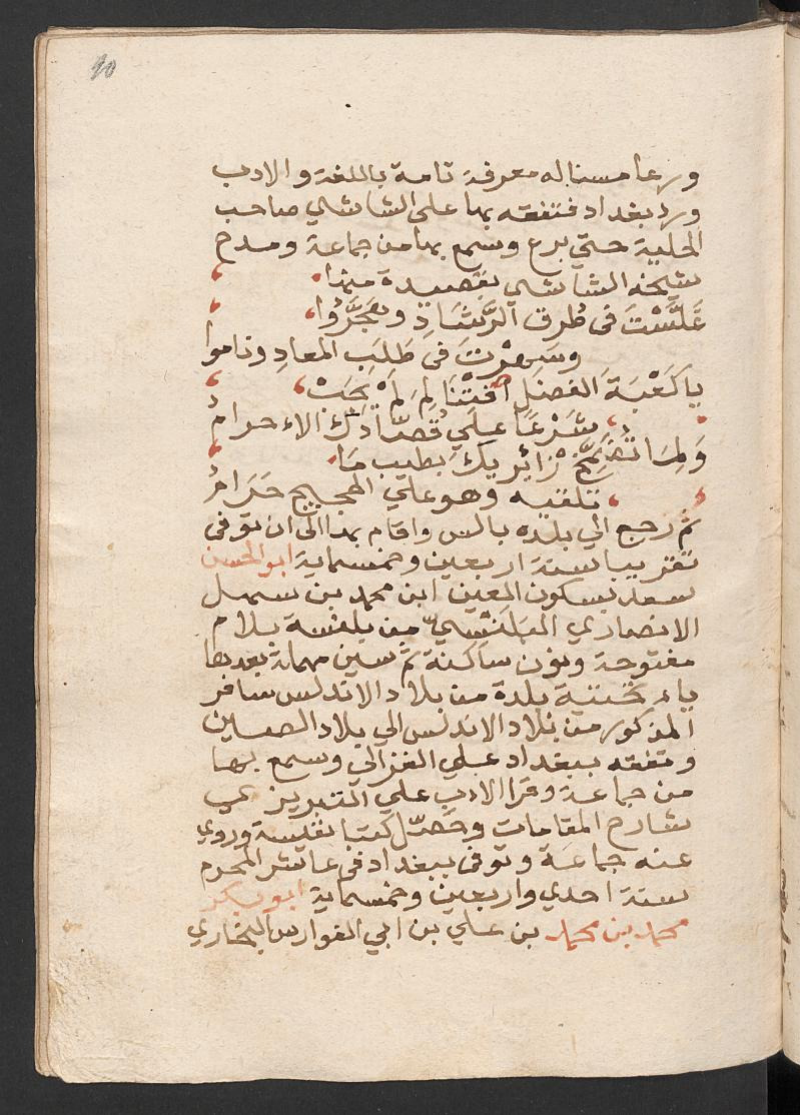 90
ورعا مسنا له معرفة تامة باللغة والادب
ورد بغداد فتفقه بها على الشاشي صاحب
الحلية حتي برع وسمع بها من جماعة ومدح
شيخه الشاشي بقصيدة منها
غَلَّسْتَ فى طُرق الرَّشَادِ وهَجَّرُوا
وسَهِرْتَ فى طَلَبِ المعادِ وناموا
يا كَعْبَةَ الفضل أفتْنَا لِمَ لَمْ يَجِبْ
شَرْعًا علي قُصّادك الاحرامُ
وَلِمَا تضَمّخ زائريك بطيب ما
تلقيه وهو علي الحجيج حَرَامُ
ثم رجع الي بلده بالس واقام بها الى ان توفى
تقريبا سنة اربعين وخمسماية ابو الحسن
سعد بسكون العين ابن محمد بن سهل
الانصاري البَلَنْسي من بلنسة بلام
مفتوحة ونون ساكنة ثم سين مهملة بعدها
ياء تحتية بلدة من بلاد الاندلس سافر
المذكور من بلاد الاندلس الي بلاد الصين
وتفقه ببغداد علي الغزالي وسمع بها
من جماعة وقرا الادب علي التبريزي
شارح المقامات وحصّل كتبا نفيسة وروي
عنه جماعة وتوفى ببغداد فى عاشر المحرم
سنة احدي واربعين وخمسماية ابو بكر
محمد بن محمد بن علي بن ابي الفوارس البخاري